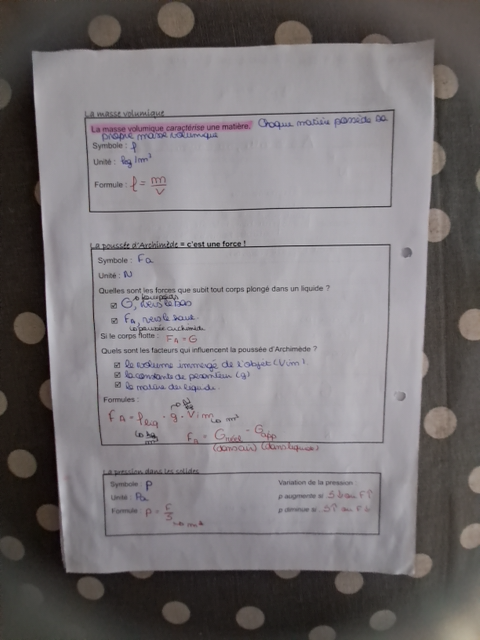 La masse volumique
La masse volumique caractérise une matière. Chaque matière possède sa
propre masse volumique
Symbole : ρ
Unité : kg/m³
Formule : ρ = m/V
La poussée d'Archimède = c'est une force !
Symbole : FA
Unité : N
Quelles sont les forces que subit tout corps plongé dans un liquide ?
G, vers le bas
FA, vers le haut
Si le corps flotte : FA = G
Quels sont les facteurs qui influencent la poussée d'Archimède ?
le volume immergé de l'objet (Vim)
la constante de pesanteur (g)
la matière du liquide
Formules :
FA = ρliq · g · Vim → m³
kg/m³
FA = Gréel - Gapp
(dans air) (dans liquide)
La pression dans les solides
Symbole : p
Unité : Pa
Formule : p = F/S → m²
Variation de la pression
p augmente si S↓ ou F↑
p diminue si S↑ ou F↓